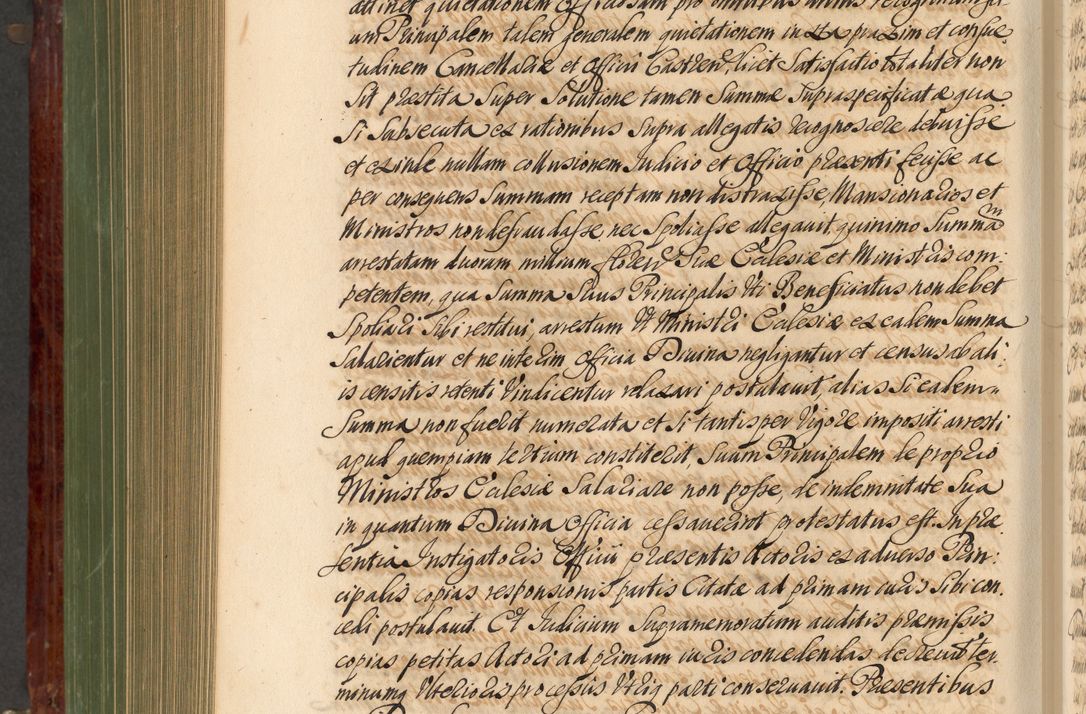 attinet quietationem Officiosam pro omnibus annis recognitam su
um Principalem talem generalem quietationem iuxta praxim et consue
tudinem Cancellariæ et Officii Castren, licet Satisfactio totaliter non
sit præstita Super Solutione tamen Summæ Supraspecificatæ qua
si Subsecuta ex rationibus Supra allegatis recognoscere debuisse
et exinde nullam collusionem Iudicio et Officio præsenti fecisse ac
per consequens Summam receptam non distraxisse, Mansionarios et
Ministros non defraudasse, nec Spoliasse allegavit, quinimo Summam
arrestatam duorum millium floren Suæ Ecclesiæ et Ministris com:
petentem, qua Summa Suus Principalis Uti Beneficiatus non debet
Spoliari Sibi restitui, arrestum Ut Ministri Ecclesiæ ex eadem Summa
Salarientur et ne interim Officia Divina negligantur et census ab ali:
is censitis retenti Vindicentur relaxari postulavit, alias Si eadem
Summa non fuerit numerata et Si tantisper Vigore impositi arresti
apud quempiam tertium constiterit, Suum Principalem de proprio
Ministros Ecclesiæ Salariare non posse, de indemnitate Sua
in quantum Divina Officia cessaverint protestatus est. In præ
sentia Instigatoris Officii præsentis Actoris ex adverso Prin:
cipalis copias responsionis partis Citatæ ad primam iuris Sibi con.
cedi postulavit. Et Iudicium Supramemoratum auditis præmissis
copias petitas Actori ad primam iuris concedendas decrevit ter.
minumq Ulterioris processus Utriq parti conservavit. Præsentibus